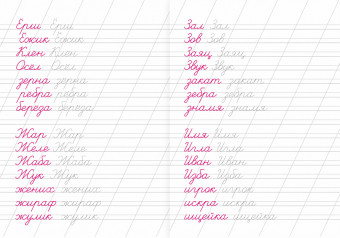 Ерш Ерш
Ежик Ежик
Клен Клен
Осел Осел
зерна зерна
ребра ребра
береза береза
Жар Жар
Желе Желе
Жаба Жаба
Жук Жук
жених жених
жираф жираф
жулик жулик
Зал Зал
Зов Зов
Заяц Заяц
Звук Звук
закат закат
зебра зебра
знамя знамя
Имя Имя
Игла Игла
Иван Иван
Изба Изба
игрок игрок
искра искра
ищейка ищейка